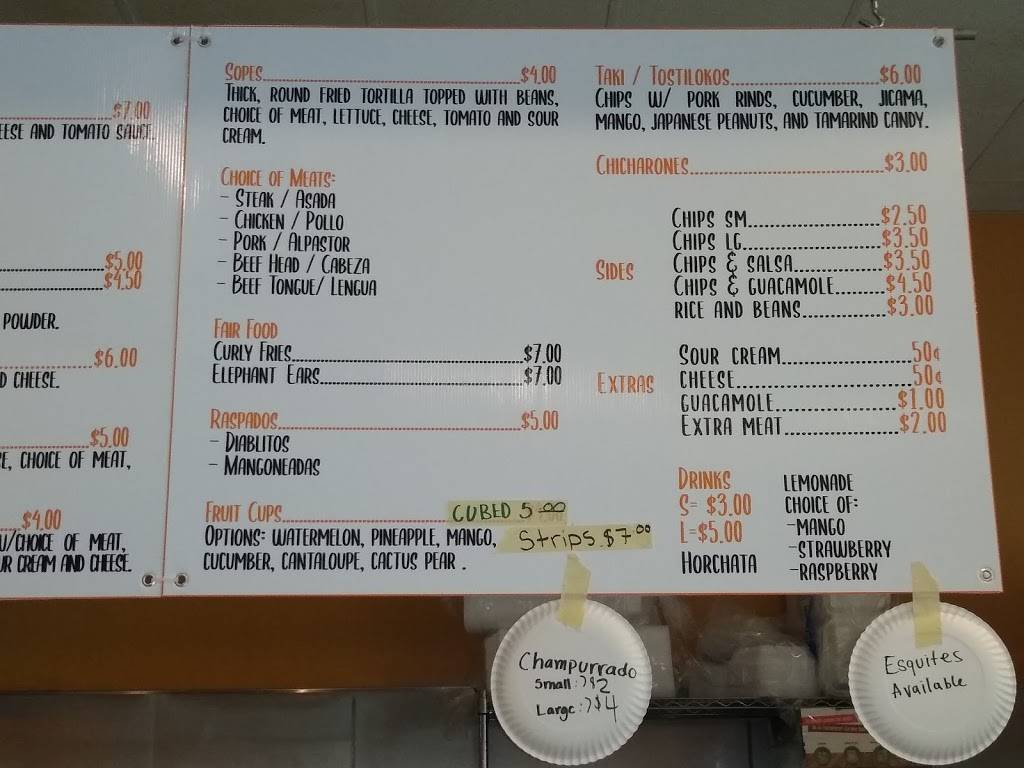 $7.00
EESE AND TOMATO SAUCE.
$5.00
$4.50
POWDER.
$6.00
D CHEESE.
$5.00
SE, CHOICE OF MEAT,
$4.00
W/CHOICE OF MEAT,
UR CREAM AND CHEESE.
SOPES $4.00
THICK, ROUND FRIED TORTILLA TOPPED WITH BEANS,
CHOICE OF MEAT, LETTUCE, CHEESE, TOMATO AND SOUR
CREAM.
CHOICE OF MEATS:
- STEAK / ASADA
- CHICKEN / POLLO
- PORK / ALPASTOR
- BEEF HEAD / CABEZA
- BEEF TONGUE/ LENGUA
FAIR FOOD
CURLY FRIES $7.00
ELEPHANT EARS $7.00
RASPADOS $5.00
- DIABLITOS
- MANGONEADAS
FRUIT CUPS CUBED 5.00
OPTIONS: WATERMELON, PINEAPPLE, MANGO, Strips $7.00
CUCUMBER, CANTALOUPE, CACTUS PEAR .
TAKI / TOSTILOKOS $6.00
CHIPS W/ PORK RINDS, CUCUMBER, JICAMA,
MANGO, JAPANESE PEANUTS, AND TAMARIND CANDY.
CHICHARONES $3.00
SIDES
CHIPS SM $2.50
CHIPS LG $3.50
CHIPS & SALSA $3.50
CHIPS & GUACAMOLE $4.50
RICE AND BEANS $3.00
EXTRAS
SOUR CREAM 50¢
CHEESE 50¢
GUACAMOLE $1.00
EXTRA MEAT $2.00
DRINKS
S- $3.00
L-$5.00
HORCHATA
LEMONADE
CHOICE OF:
-MANGO
-STRAWBERRY
-RASPBERRY
Champurrado
Small: $2
Large: $4
Esquites
Available